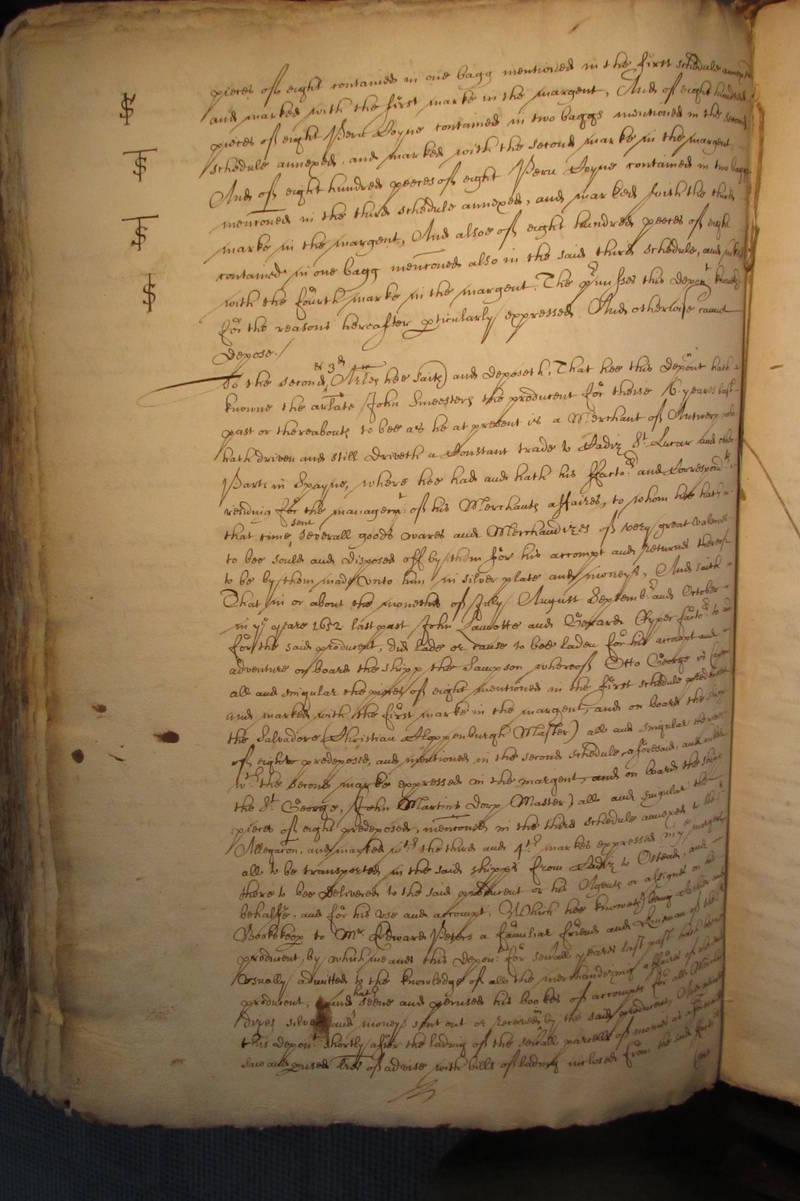 pieces of eight contained in one bagg mentioned in the first schedule annexed
and marked with the first marke in the margent, And of eight hundred
pieces of eight Peru Coyne contained in two baggs mentioned in the second
schedule annexed, and marked with the second marke in the margent,
And of eight hundred peeces of eight Peru Coyne contained in two baggs
menconed in the third schedule annexed, and marked with the third
marke in the margent, And alsoe of eight hundred peeces of eight
contained in one bagg menconed also in the said third schedule, and
with the fourth marke in the margent. The premisses this depont knoweth
for the reasons hereafter pticularly expressed. And otherwise cannot
depose./
To the second & 3d Arles hee saith and deposeth, That hee this deponent hath
knowne the arlate John Smeesters the producent for theise 16 yeares last
past or thereabouts to bee as he at present is a Merchant of Antwerp who
hath driven and still driveth a Constant trade to Cadiz St. Lucar and other
Parts in Spayne, where hee had and hath his ffactors and Correspond
for the managery of his Merchants affaires, to whom hee hath
that time sent severall goods wares and Merchandizes of very great valewes
to bee sould and disposed off by them for his accompt and returns thereof
to be by them made unto him in silver plate and moneys, And saith
That in or about the moneths of July August September and October
in ye yeare 1652 last past John and Gerard factors
for the said producent, did lade or cause to bee laden for his accompt and
adventure on board the shipp the Sampson whereof Otto George is
all and singular the pieces of eight mentioned in the first schedule
and marked with the first marke in the margent, and on board the
the Salvadore (Christian Cloppenburgh Master) all and singular
of eight predeposed, and mentioned in the second schedule aforesaid, and
wth the second marke expressed in the margent, and on board the shipp
the St. George, (John Martins Dorp Master) all and singular the
pieces of eight predeposed, menconed in the third schedule annexed to the
Allegacon, and marked wth the third and 4th markes expressed in ye margent
all to be transported in the said shipps from Cadiz to Ostend, and
there to bee delivered to the said producent or his Agents or assignes on his
behalfe, and for his use and accompt, Which hee knoweth being
Bookekeeper to Mr Edward Peters a familiar friend and kinsman of the
producent, by which meanes this depont for severall yeares last past hath been
usually admitted to the knowledge of all the merchandizing affaires of the
producent, and hath seene and perused his bookes of accompts for all
silver and moneys sent out or received by the said producent,
this depont shortly after the lading of the severall parcells of moneys
saw and perused lres of advise with bills of lading inclosed from the said